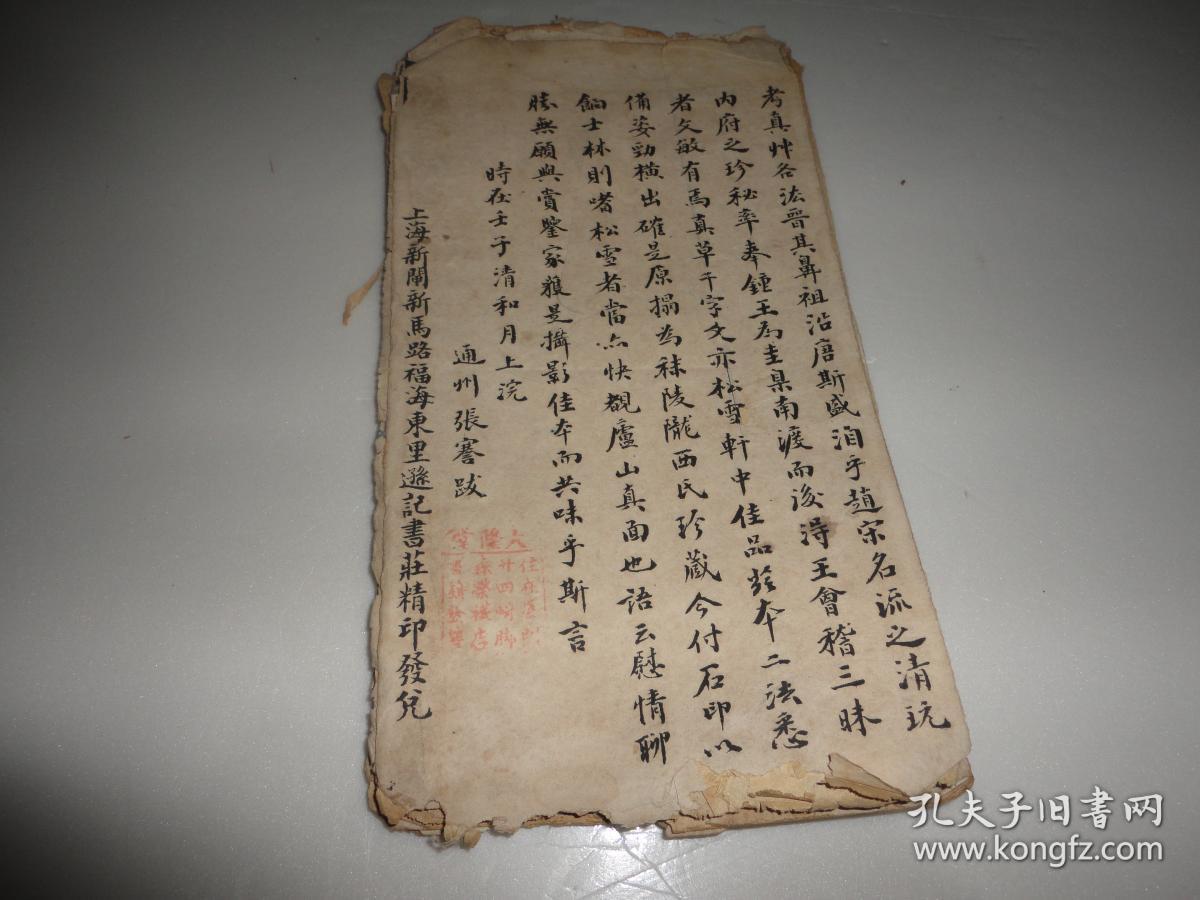 考真艸各法晉其鼻祖沿唐斯盛洎乎趙宋名流之清玩
內府之珍秘率奉鍾王為圭臬南渡而後得王會稽三昧
者文敏有焉真草千字文亦松雪軒中佳品茲本二法悉
備姿勁橫出確是原搨為秣陵隴西氏珍藏今付石印以
餉士林則嗜松雪者當亦快覩廬山真面也語云慰情聊
勝無願與賞鑒家獲是攝影佳本而共味乎斯言
時在壬子清和月上浣
通州張謇跋
上海新閘新馬路福海東里遜記書莊精印發兌
大隆
廿四
孔夫子旧书网
www.kongfz.com